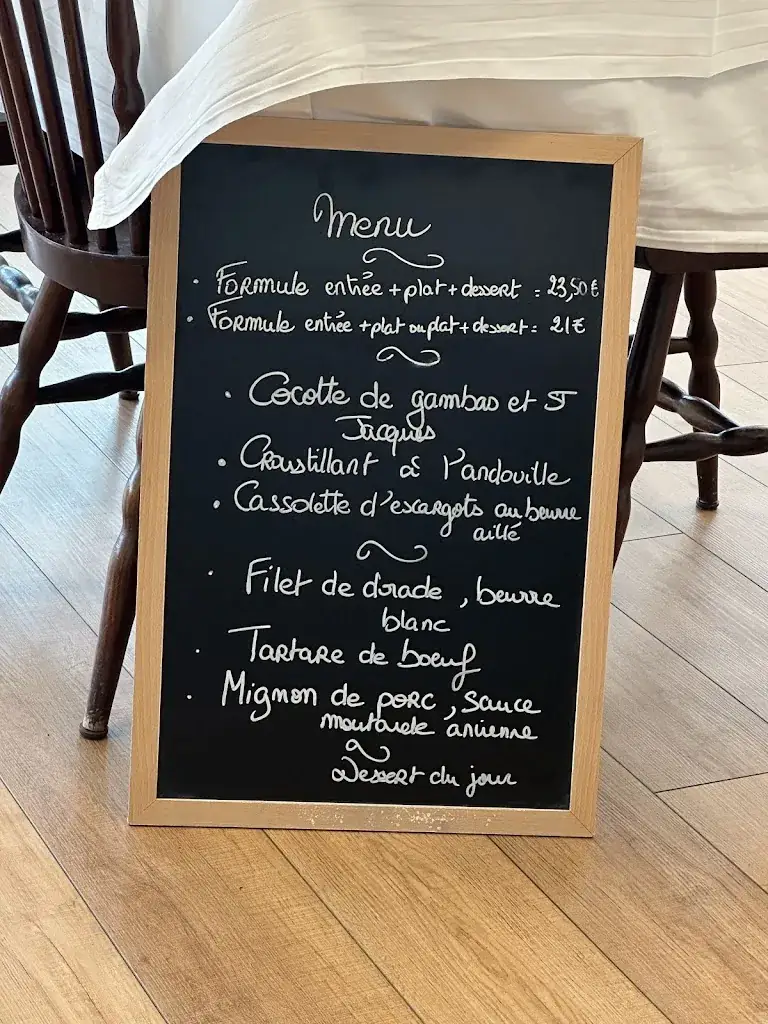 Menu
· Formule entrée + plat + dessert = 23,50€
· Formule entrée + plat ou plat + dessert = 21€
· Cocotte de gambas et St
Jacques
· Croustillant de l'andouille
· Cassolette d'escargots au beurre
aillé
· Filet de dorade, beurre
blanc
· Tartare de boeuf
· Mignon de porc, sauce
moutarde ancienne
Dessert du jour